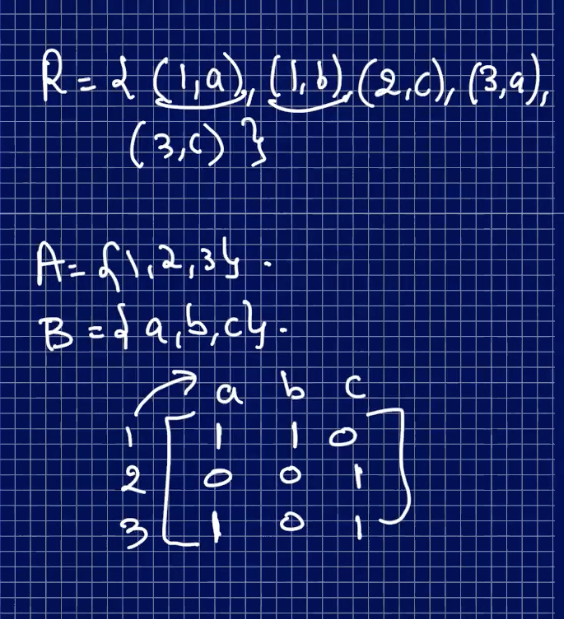 R = { (1,a), (1,b), (2,c), (3,a),
(3,c) }
A = {1,2,3}.
B = {a,b,c}.
a b c
1 [ 1 1 0 ]
2 [ 0 0 1 ]
3 [ 1 0 1 ]